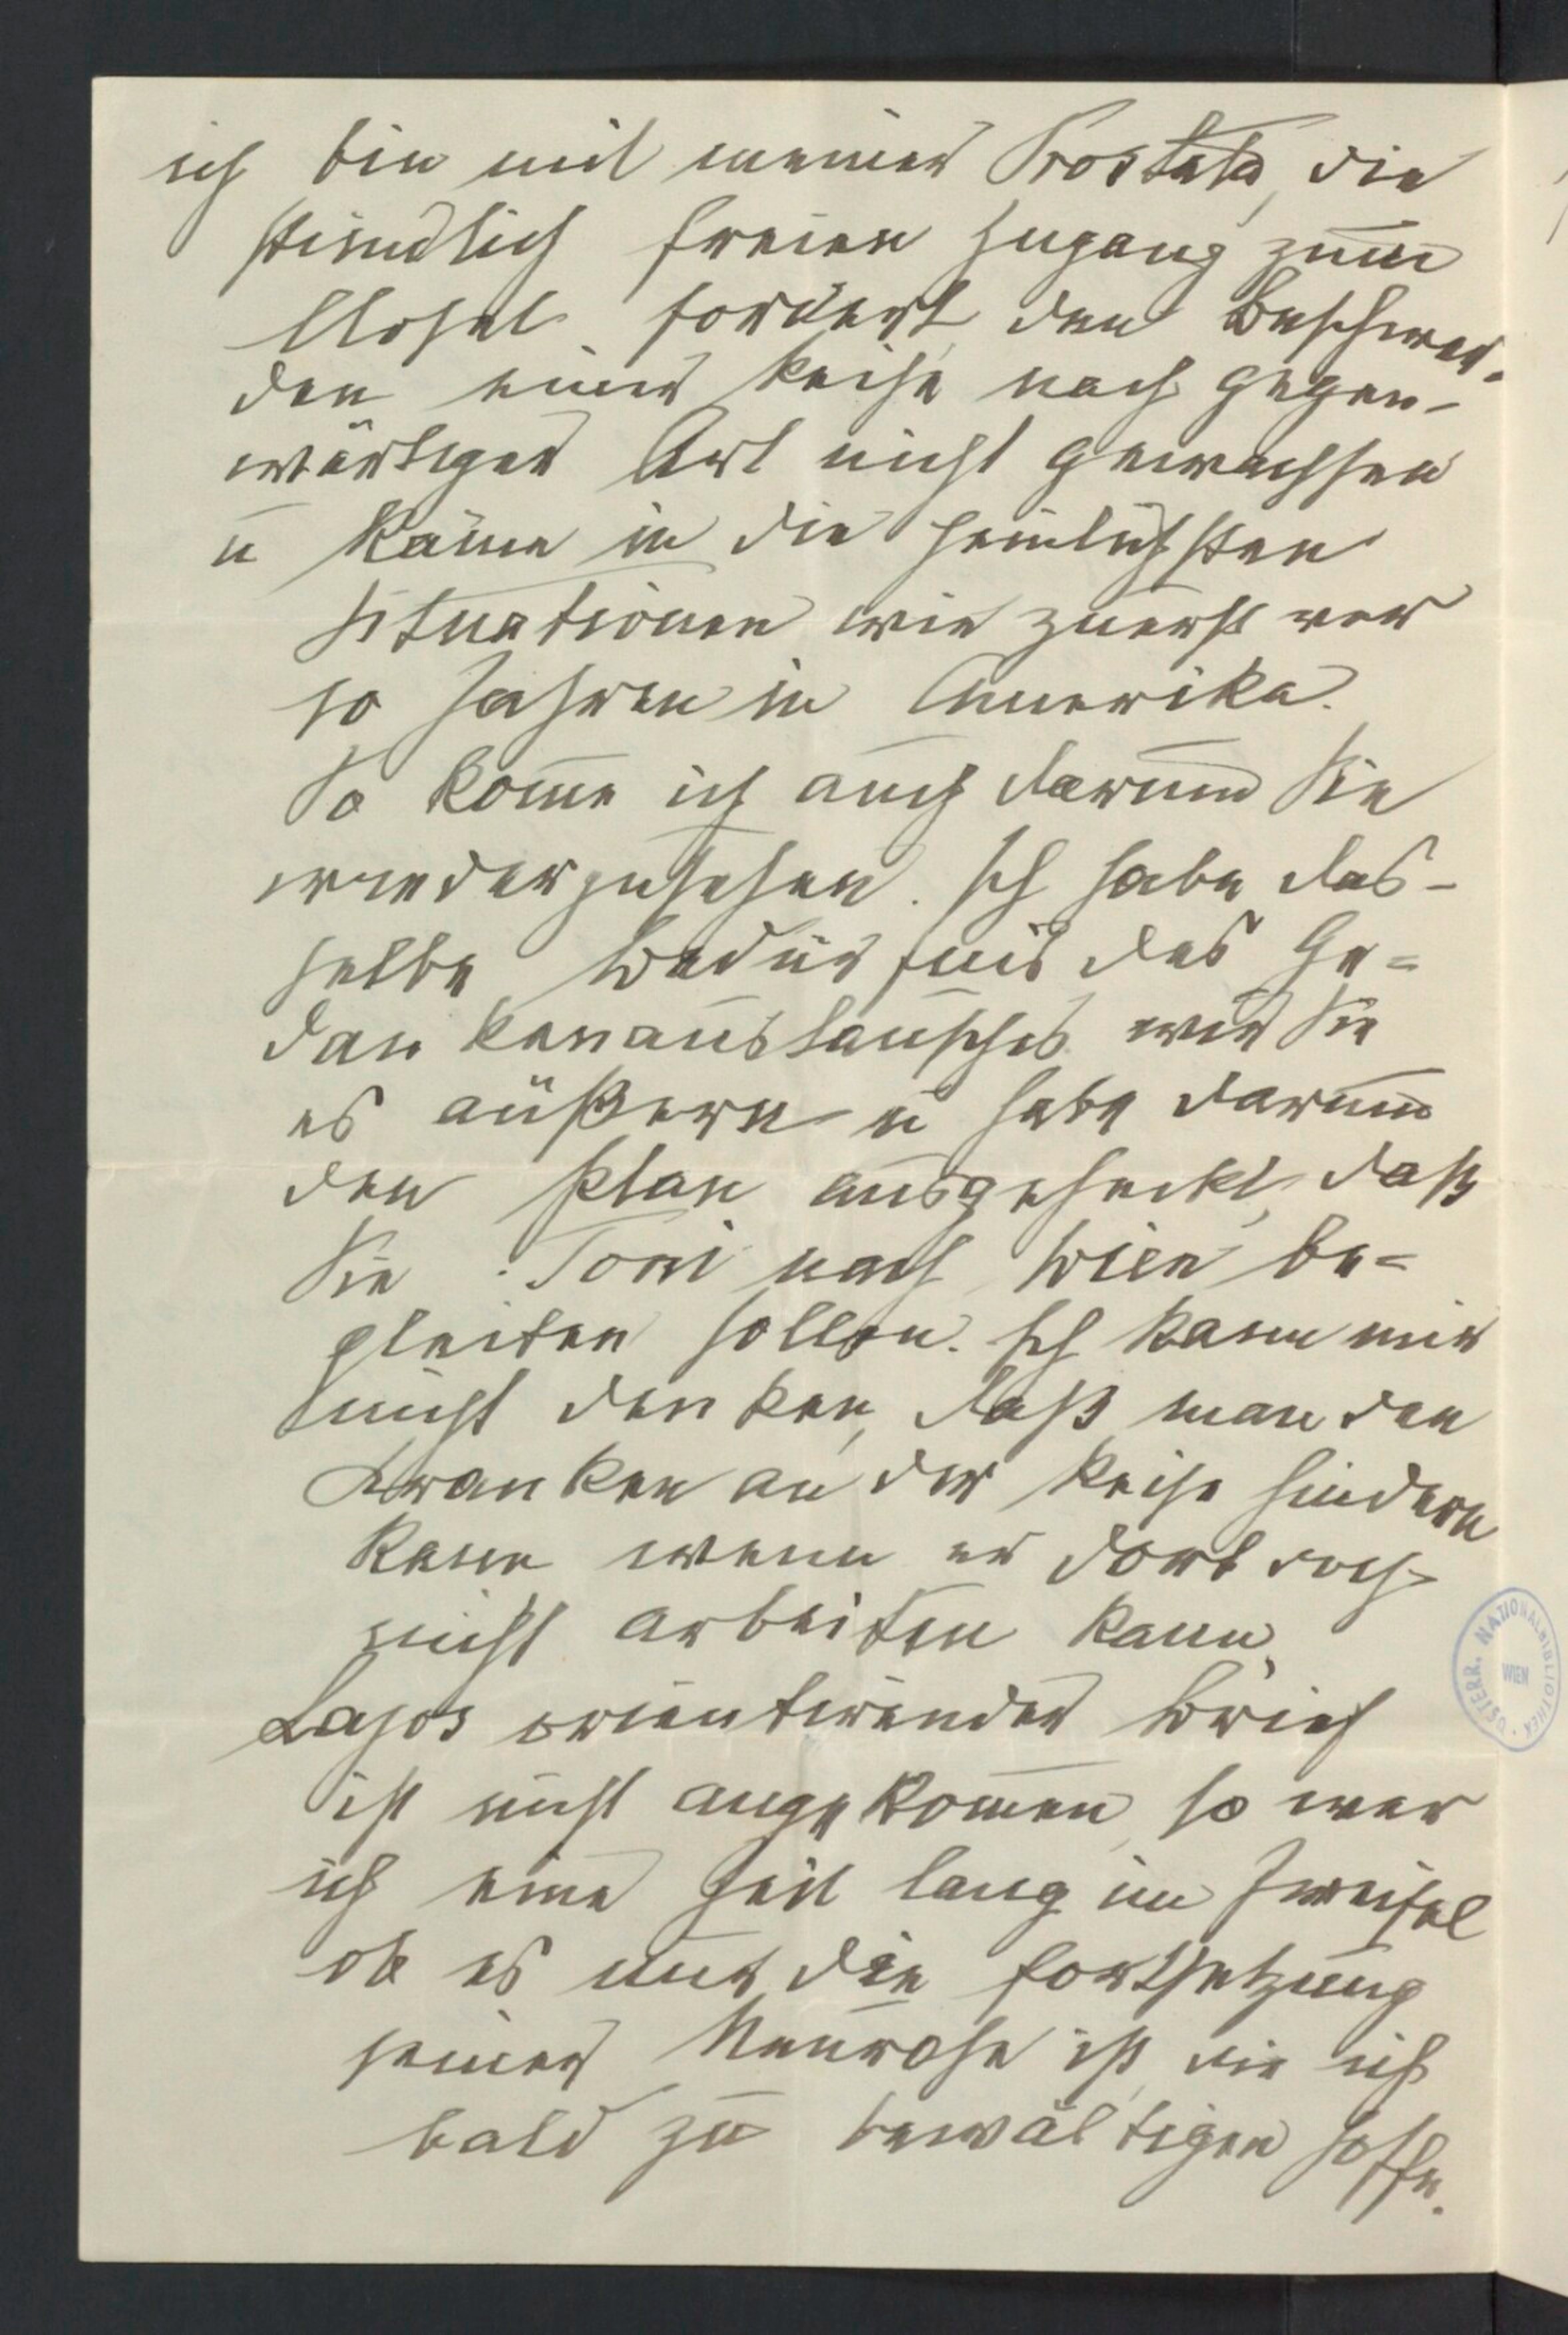 ich bin mit meiner Prostata, die
stündlich freien Zugang zum
Closet fordert, den Beschwer-
den einer Reise nach gegen-
wärtiger Art nicht gewachsen
u käme in die peinlichsten
Situationen wie zuerst vor
10 Jahren in Amerika.
So kome ich auch darum Sie
wiederzusehen. Ich habe das-
selbe Bedürfnis des Ge-
dankenaustausches wie Sie
es äußern u habe darum
den Plan ausgeheckt, daß
Sie Toni nach Wien be-
gleiten sollen. Ich kann mir
nicht denken, daß man den
Kranken an der Reise hindern
kann wenn er dort doch
nicht arbeiten kann.
Lajos orientirender Brief
ist nicht angekomen, so war
ich eine Zeit lang im Zweifel
ob es nur die Fortsetzung
seiner Neurose ist, die ich
bald zu bewältigen hoffe.
ÖSTERR. NATIONALBIBLIOTHEK · WIEN